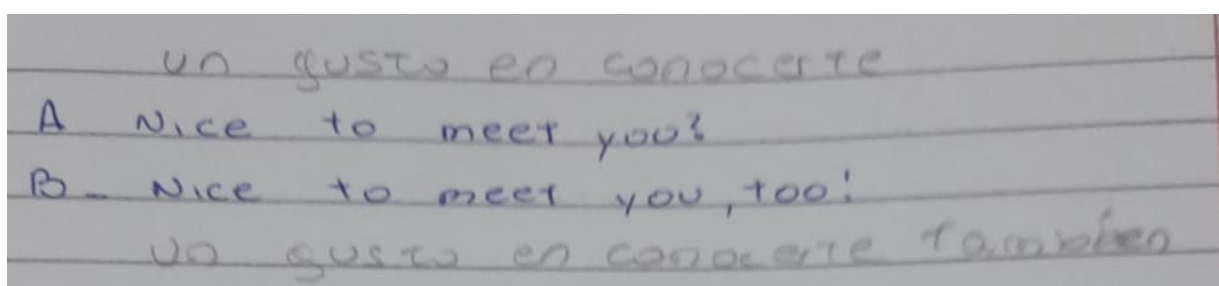 un gusto en conocerte
A Nice to meet you?
B- Nice to meet you, too!
un gusto en conocerte tambien